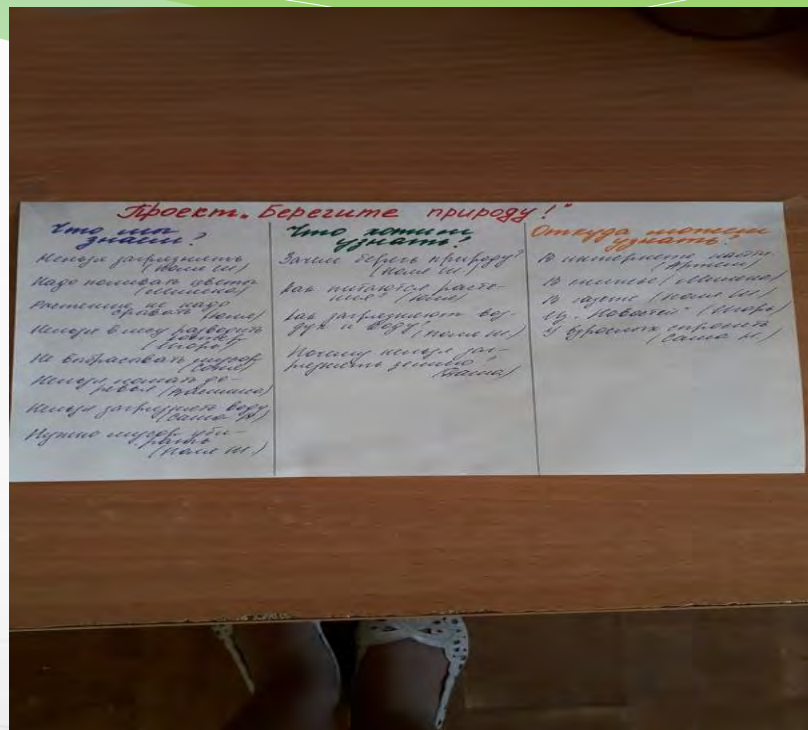 Проект „Берегите природу!"
Что мы
знаем?
Нельзя загрязнять
(Поля Ш)
Надо поливать цветы
Растения не надо
срывать (Юля)
Нельзя в лесу разводить
костёр
(Игорь)
Не выбрасывать мусор
(Соня)
Нельзя ломать де-
ревья
Нельзя загрязнять воду
(Саша Н)
Нужно мусор уби-
рать
(Поля Ш.)
Что хотим
узнать?
Зачем беречь природу?
(Поля Ш.)
Как питаются расте-
ния? (Юля)
Как загрязняют воз-
дух и воду? (Поля Ш.)
Почему нельзя заг-
рязнять землю?
(Саша)
Откуда можем
узнать?
В интернете найти
(Артём)
В книгах
В газете (Поля Ш)
Из „Новостей" (Игорь)
У взрослых спросить
(Саша Н)